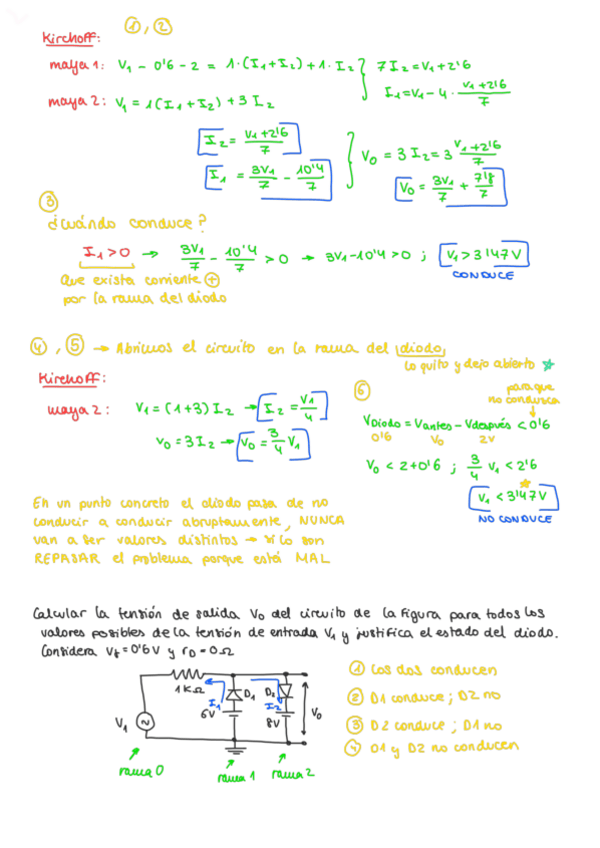 ①, ②
Kirchoff:
maya 1: V1 - 0'6 - 2 = 1·(I1+I2) + 1·I2 } 7I2 = V1 + 2'6
maya 2: V1 = 1(I1+I2) + 3I2 I1 = V1 - 4· (V1+2'6)/7
I2 = (V1+2'6)/7 } V0 = 3I2 = 3 (V1+2'6)/7
I1 = 3V1/7 - 10'4/7 V0 = 3V1/7 + 7'8/7
③
¿Cuándo conduce?
I1>0 → 3V1/7 - 10'4/7 > 0 → 3V1-10'4>0 ; V1>3'47V
CONDUCE
Que exista corriente ⊕
por la rama del diodo
④, ⑤ → Abrimos el circuito en la rama del diodo,
lo quito y dejo abierto ★
Kirchoff:
maya 2: V1 = (1+3) I2 → I2 = V1/4
V0 = 3I2 → V0 = 3/4 V1
⑥
para que
no conduzca
↓
VDiodo = Vantes - Vdespués < 0'6
0'6 V0 2V
V0 < 2+0'6 ; 3/4 V1 < 2'6
V1 < 3'47V
NO CONDUCE
En un punto concreto el diodo pasa de no
conducir a conducir abruptamente, NUNCA
van a ser valores distintos → si lo son
REPASAR el problema porque está MAL
Calcular la tensión de salida V0 del circuito de la figura para todos los
valores posibles de la tensión de entrada V1 y justifica el estado del diodo.
Considera Vγ = 0'6V y rD = 0Ω
① Los dos conducen
② D1 conduce ; D2 no
③ D2 conduce ; D1 no
④ D1 y D2 no conducen
1KΩ
I1
D1
D2
I2
6V
8V
V0
V1
rama 0
rama 1
rama 2